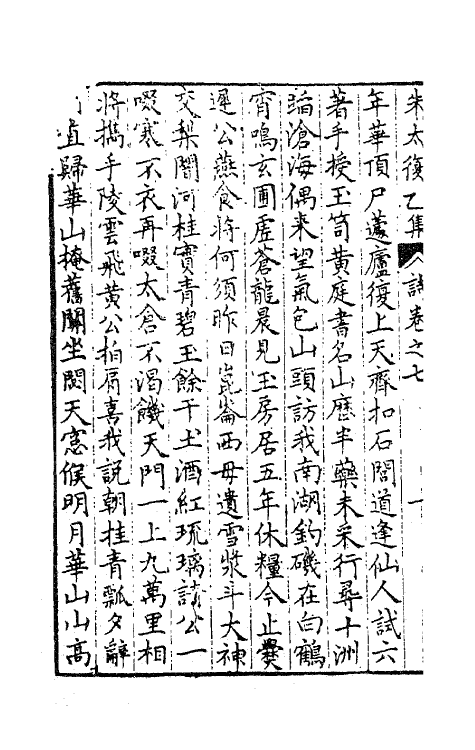 朱太復乙集 詩卷之七 一
年華頂尸蘧廬復上天齊扣石閭道逢仙人試六
著手授玉笥黃庭書名山歷半藥未采行尋十洲
蹈滄海偶來望氣色山頭訪我南湖釣磯在白鶴
宵鳴玄圃虛蒼龍晨見玉房居五年休糧今止爨
遲公燕食將何須昨日崑崙西母遺雪漿斗大神
交梨閬河桂實青碧玉餘干土酒紅琉璃請公一
啜寒不衣再啜太倉不渴饑天門一上九萬里相
將攜手陵雲飛黃公拍肩喜我説朝挂青瓢夕辭
直歸華山掩舊關坐閱天窓候明月華山山高